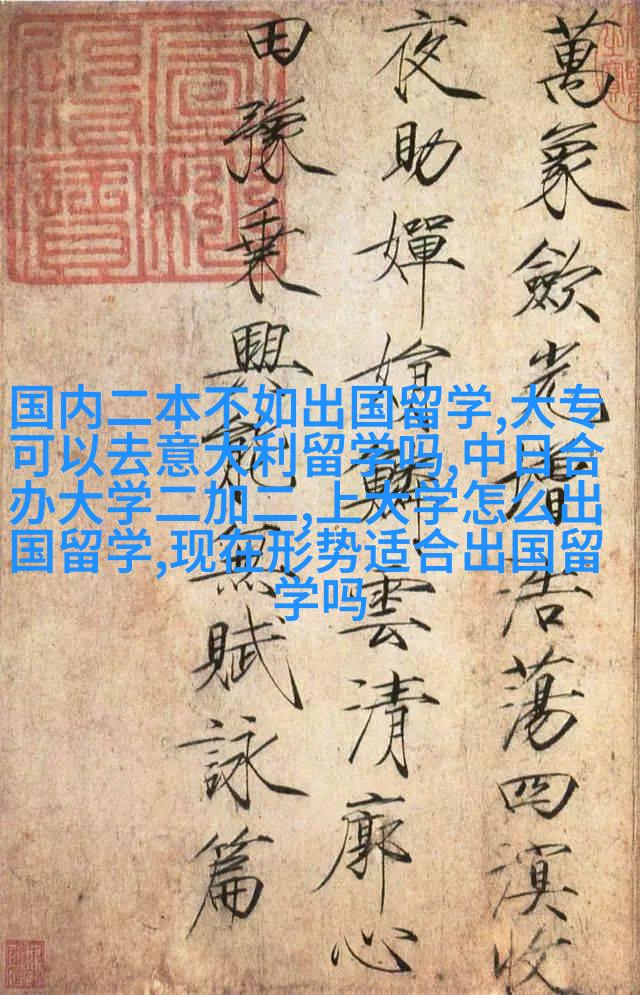 萬象歛光增浩蕩四溟收
夜助嬋娟鱗雲清廓心
田豫乘興能無賦詠篇
国内二本不如出国留学,大专
可以去意大利留学吗,中日合
办大学二加二,上大学怎么出
国留学,现在形势适合出国留
学吗